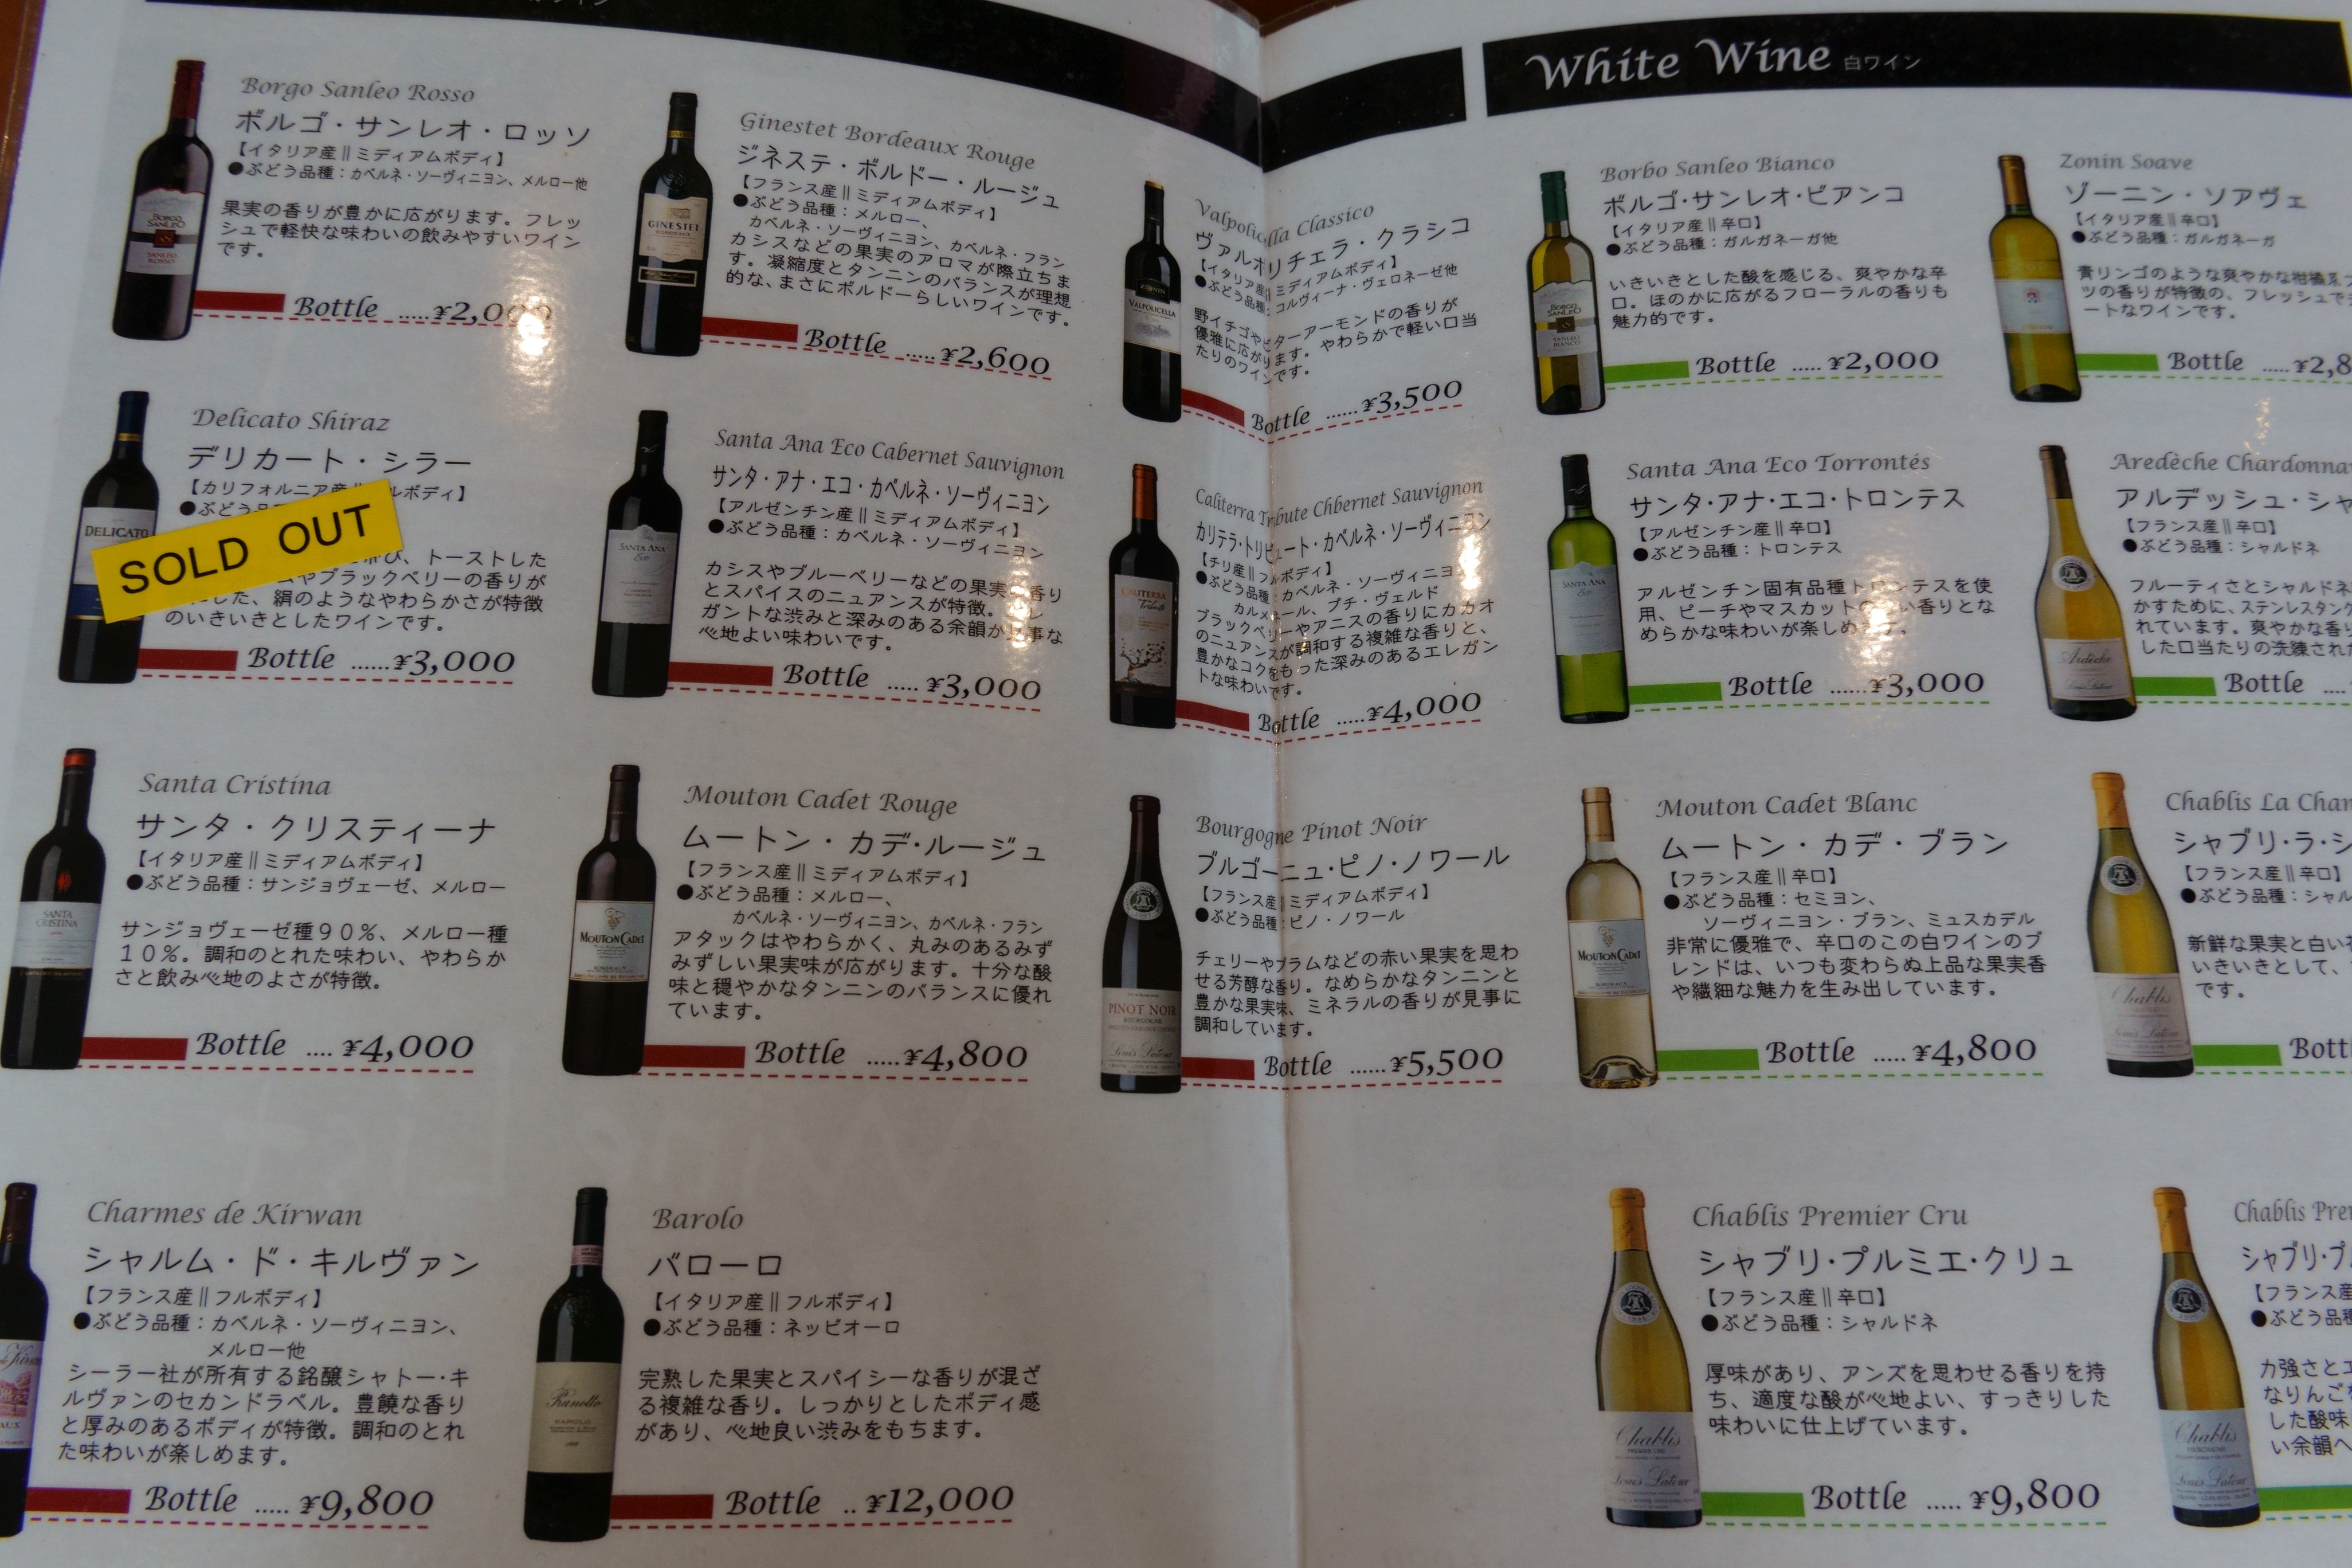 ワイン
Borgo Sanleo Rosso
ボルゴ・サンレオ・ロッソ
【イタリア産‖ミディアムボディ】
●ぶどう品種：カベルネ・ソーヴィニヨン、メルロー他
果実の香りが豊かに広がります。フレッ
シュで軽快な味わいの飲みやすいワイン
です。
Bottle ......¥2,000
Ginestet Bordeaux Rouge
ジネステ・ボルドー・ルージュ
【フランス産‖ミディアムボディ】
●ぶどう品種：メルロー、
カベルネ・ソーヴィニヨン、カベルネ・フラン
カシスなどの果実のアロマが際立ちま
す。凝縮度とタンニンのバランスが理想
的な、まさにボルドーらしいワインです。
Bottle ......¥2,600
Valpolicella Classico
ヴァルポリチェラ・クラシコ
【イタリア産‖ミディアムボディ】
●ぶどう品種：コルヴィーナ・ヴェロネーゼ他
野イチゴやビターアーモンドの香りが
優雅に広がります。やわらかで軽い口当
たりのワインです。
Bottle ......¥3,500
Delicato Shiraz
デリカート・シラー
【カリフォルニア産
ルボディ】
●ぶどう
SOLD OUT
び、トーストした
やブラックベリーの香りが
した、絹のようなやわらかさが特徴
のいきいきとしたワインです。
Bottle ......¥3,000
Santa Ana Eco Cabernet Sauvignon
サンタ・アナ・エコ・カベルネ・ソーヴィニヨン
【アルゼンチン産‖ミディアムボディ】
●ぶどう品種：カベルネ・ソーヴィニヨン
カシスやブルーベリーなどの果実の香り
とスパイスのニュアンスが特徴。エレ
ガントな渋みと深みのある余韻が見事な
心地よい味わいです。
Bottle .....¥3,000
Caliterra Tribute Chbernet Sauvignon
カリテラ・トリビュート・カベルネ・ソーヴィニヨン
【チリ産‖フルボディ】
●ぶどう品種：カベルネ・ソーヴィニヨン
カルメネール、プチ・ヴェルド
ブラックベリーやアニスの香りにカカオ
のニュアンスが調和する複雑な香りと、
豊かなコクをもった深みのあるエレガン
トな味わいです。
Bottle .....¥4,000
Santa Cristina
サンタ・クリスティーナ
【イタリア産‖ミディアムボディ】
●ぶどう品種：サンジョヴェーゼ、メルロー
サンジョヴェーゼ種９０％、メルロー種
１０％。調和のとれた味わい、やわらか
さと飲み心地のよさが特徴。
Bottle .... ¥4,000
Mouton Cadet Rouge
ムートン・カデ・ルージュ
【フランス産‖ミディアムボディ】
●ぶどう品種：メルロー、
カベルネ・ソーヴィニヨン、カベルネ・フラン
アタックはやわらかく、丸みのあるみず
みずしい果実味が広がります。十分な酸
味と穏やかなタンニンのバランスに優れ
ています。
Bottle .....¥4,800
Bourgogne Pinot Noir
ブルゴーニュ・ピノ・ノワール
【フランス産‖ミディアムボディ】
●ぶどう品種：ピノ・ノワール
チェリーやプラムなどの赤い果実を思わ
せる芳醇な香り。なめらかなタンニンと
豊かな果実味、ミネラルの香りが見事に
調和しています。
Bottle ......¥5,500
Charmes de Kirwan
シャルム・ド・キルヴァン
【フランス産‖フルボディ】
●ぶどう品種：カベルネ・ソーヴィニヨン、
メルロー他
シーラー社が所有する銘醸シャトー・キ
ルヴァンのセカンドラベル。豊饒な香り
と厚みのあるボディが特徴。調和のとれ
た味わいが楽しめます。
Bottle ..... ¥9,800
Barolo
バローロ
【イタリア産‖フルボディ】
●ぶどう品種：ネッビオーロ
完熟した果実とスパイシーな香りが混ざ
る複雑な香り。しっかりとしたボディ感
があり、心地良い渋みをもちます。
Bottle ..¥12,000
White Wine 白ワイン
Borbo Sanleo Bianco
ボルゴ・サンレオ・ビアンコ
【イタリア産‖辛口】
●ぶどう品種：ガルガネーガ他
いきいきとした酸を感じる、爽やかな辛
口。ほのかに広がるフローラルの香りも
魅力的です。
Bottle ......¥2,000
Zonin Soave
ゾーニン・ソアヴェ
【イタリア産‖辛口】
●ぶどう品種：ガルガネーガ
青リンゴのような爽やかな柑橘系フ
ツの香りが特徴の、フレッシュで
ートなワインです。
Bottle ......¥2,8
Santa Ana Eco Torrontés
サンタ・アナ・エコ・トロンテス
【アルゼンチン産‖辛口】
●ぶどう品種：トロンテス
アルゼンチン固有品種トロンテスを使
用、ピーチやマスカットの
い香りとな
めらかな味わいが楽しめます。
Bottle ......¥3,000
Aredèche Chardonna
アルデッシュ・シャ
【フランス産‖辛口】
●ぶどう品種：シャルドネ
フルーティさとシャルドネ
かすために、ステンレスタンク
れています。爽やかな香り
した口当たりの洗練された
Bottle ....
Mouton Cadet Blanc
ムートン・カデ・ブラン
【フランス産‖辛口】
●ぶどう品種：セミヨン、
ソーヴィニヨン・ブラン、ミュスカデル
非常に優雅で、辛口のこの白ワインのブ
レンドは、いつも変わらぬ上品な果実香
や繊細な魅力を生み出しています。
Bottle .....¥4,800
Chablis La Chan
シャブリ・ラ・シ
【フランス産‖辛口】
●ぶどう品種：シャル
新鮮な果実と白い
いきいきとして、
です。
Bottl
Chablis Premier Cru
シャブリ・プルミエ・クリュ
【フランス産‖辛口】
●ぶどう品種：シャルドネ
厚味があり、アンズを思わせる香りを持
ち、適度な酸が心地よい、すっきりした
味わいに仕上げています。
Bottle ..... ¥9,800
Chablis Prem
シャブリ・プル
【フランス産
●ぶどう品種
力強さとエ
なりんご
した酸味
い余韻へ